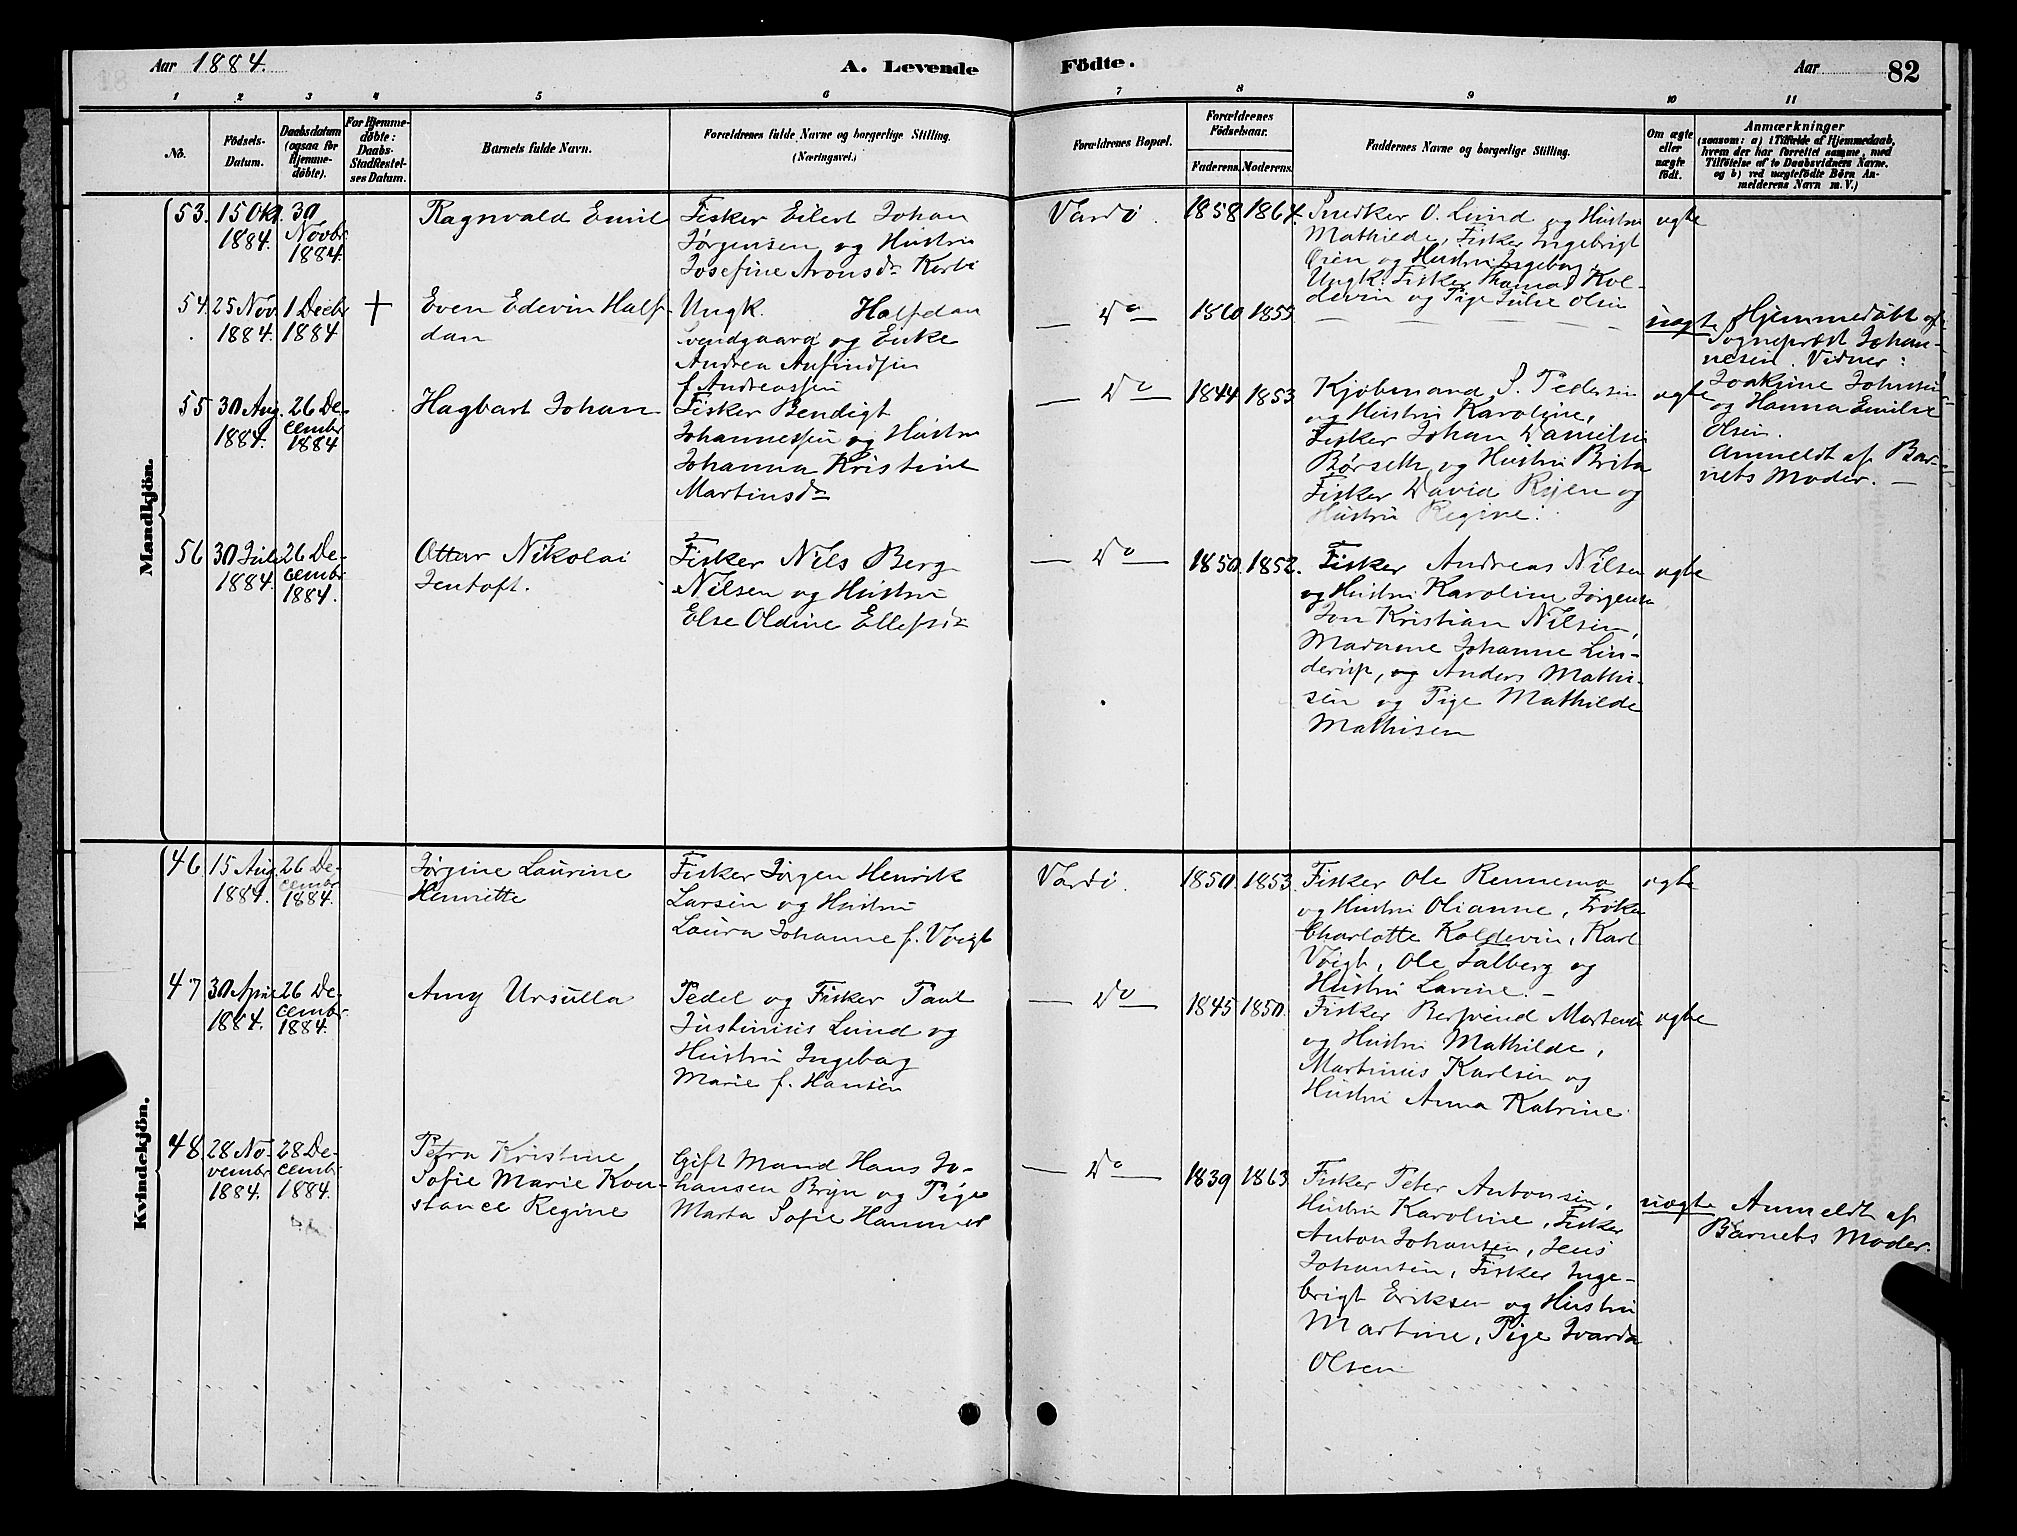 Aar 1884.
A. Levende
Födte.
Aar
82
1
2
3
4
5
6
7
8
9
10
11
No.
Födsels-
Datum.
Daabsdatum
(ogsaa for
Hjemme-
döbte).
For Hjemme-
döbte:
Daabs-
Stadfæstel-
ses Datum.
Barnets fulde Navn.
Forældrenes fulde Navne og borgerlige Stilling.
(Næringsvei.)
Forældrenes Bopæl.
Forældrenes
Födselsaar.
Faderens.
Moderens.
Faddernes Navne og borgerlige Stilling.
Om ægte
eller
uægte
födt.
Anmærkninger
(saasom: a) i Tilfælde af Hjemmedaab,
hvem der har forrettet samme, med
Tilföielse af to Daabsvidners Navne.
og b) ved uægtefödte Börn An-
melderens Navn m. V.)
Mandkjön.
53.
15 Okt.
1884.
30
Novbr.
1884.
Ragnvald Emil
Fisker Eilert Johan
Jørgensen og Hustru
Josefine Aronsdr
Vardö.
1858
1864.
Snedker O. Lund og Hustru
Mathilde, Fisker Ingebrigt
Øien og Hustru Ingeborg,
Ungk. Fisker Thomas Kol-
devin og Pige Julie Olsen
ægte
54.
25 Nov.
1884.
1 Decbr
1884
+
Even Edevin Half-
dan
Ungk. Halfdan
Svendgaard og Enke
Andrea Anfindsen
f. Andreassen
— Do —
1860
1855
— — — — — —
uægte
Hjemmedöbt af
Sogneprest Johan-
nesen. Vidner:
Joakime Johnsen
og Hanna Emilie
Olsen.
Anmeldt af Bar-
nets Moder. —
55
30 Aug.
1884.
26 De-
cembr
1884
Hagbart Johan
Fisker Bendigt
Johannessen og Hustru
Johanna Kristine
Martinsdr
— Do —
1844
1853
Kjøbmand S. Pedersen
og Hustru Karoline,
Fisker Johan Danielsen
Børseth og Hustru Brita
Fisker David Rijen og
Hustru Regine.
ægte
56
30 Juli
1884.
26 De-
cembr.
1884.
Ottar Nikolai
Jentoft.
Fisker Nils Berg
Nilsen og Hustru
Else Oldine Ellefsdr
— Do —
1850.
1852.
Fisker Andreas Nilsen
og Hustru Karoline Jørgensen
Jon Kristian Nilsen,
Madame Johanne Lin-
derup, og Anders Mathi-
sen og Pige Mathilde
Mathisen
ægte
Kvindekjön.
46
15 Aug.
1884.
26 De-
cembr
1884.
Jørgine Laurine
Henriette
Fisker Jörgen Henrik
Larsen og Hustru
Laura Johanne f. Voigt
Vardö.
1850.
1853.
Fisker Ole Rennemo
og Hustru Olianne, Frøken
Charlotte Koldevin, Karl
Voigt, Ole Falberg og
Hustru Lavine. —
ægte
47
30 April
1884.
26 De-
cembr.
1884.
Amy Ursulla
Pedel og Fisker Paul
Justinus Lund og
Hustru Ingeborg
Marie f. Hansen
— Do —
1845
1850.
Fisker Mortensen
og Hustru Mathilde,
Martinus Karlsen og
Hustru Anna Katrine.
ægte
48.
28 No-
vembr
1884.
28 De-
cembr
1884.
Petra Kristine
Sofie Marie Kon-
stance Regine
Gift Mand Hans Jo-
hansen Bryn og Pige
Marta Sofie Hammer
— Do —
1839
1863
Fisker Peter Antonsen,
Hustru Karoline, Fisker
Anton Johansen, Jens
Johansen, Fisker Inge-
brigt Eriksen og Hustru
Martine, Pige Ivarda
Olsen
uægte
Anmeldt af
Barnets Moder.